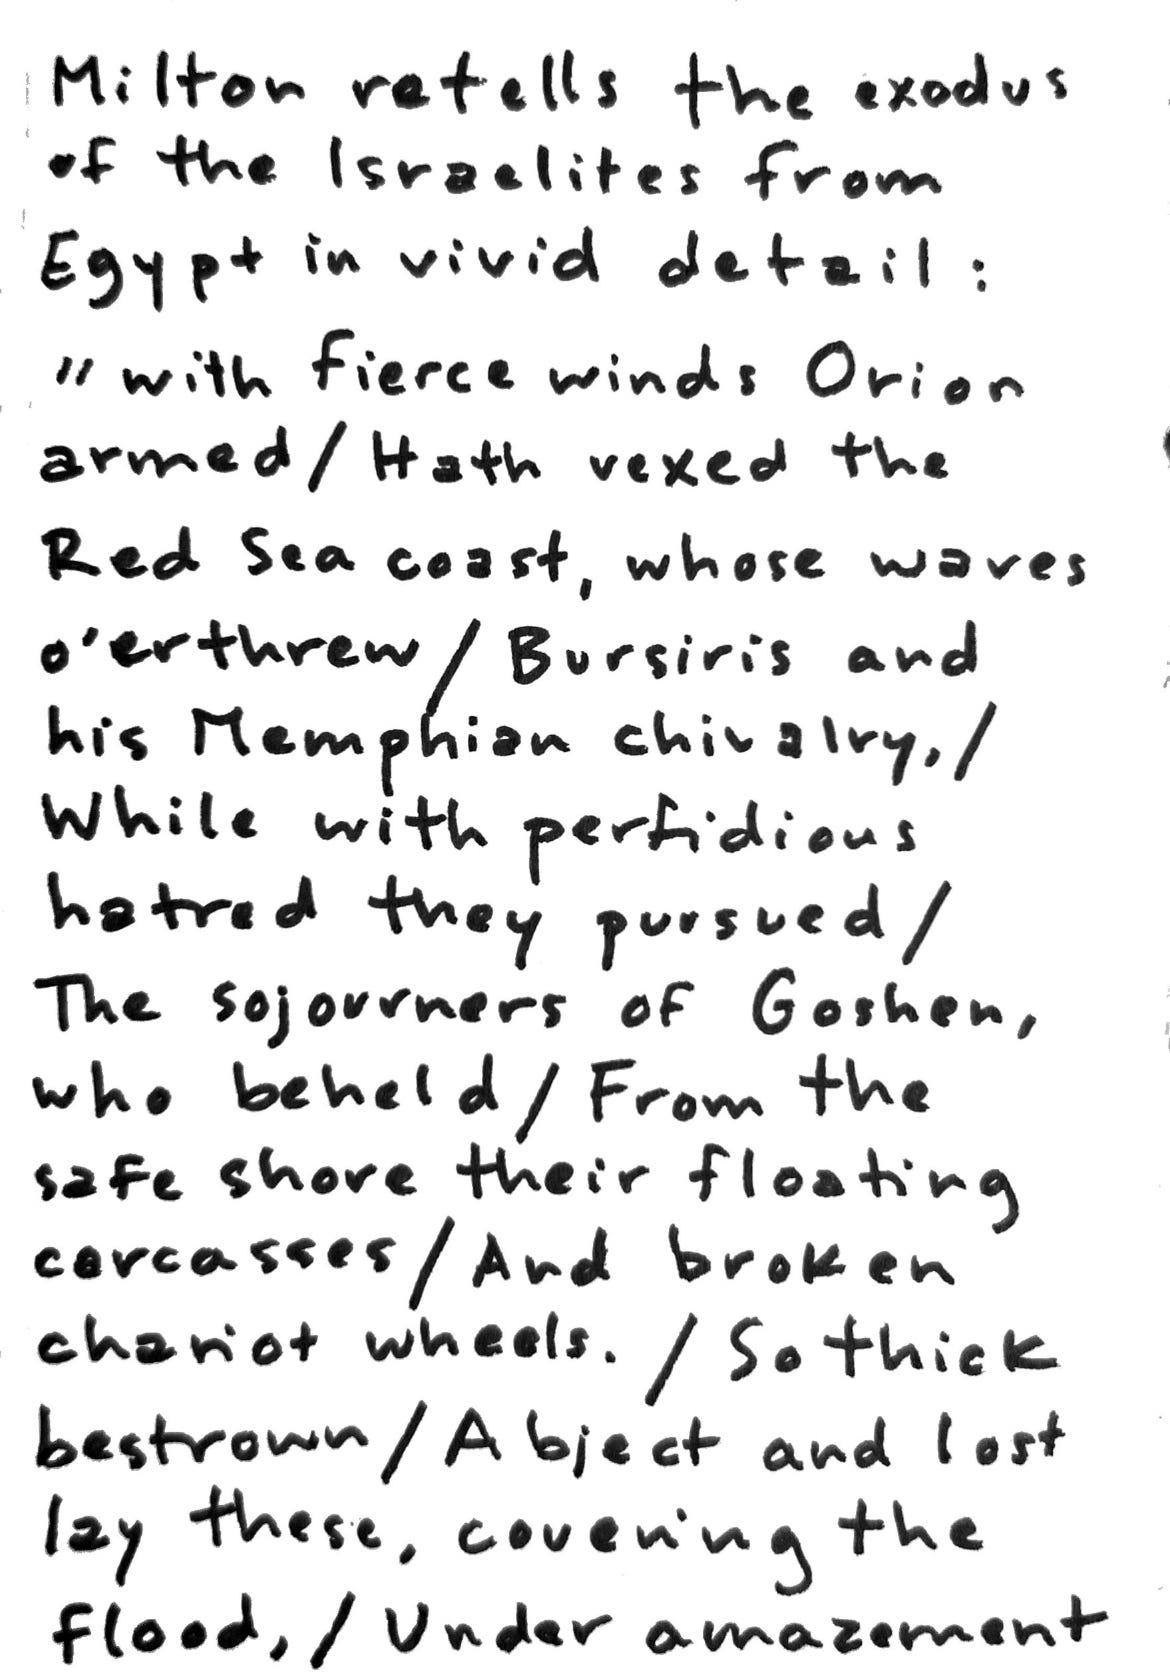 Milton retells the exodus
of the Israelites from
Egypt in vivid detail:
"with fierce winds Orion
armed/Hath vexed the
Red Sea coast, whose waves
o'erthrew/Bursiris and
his Memphian chivalry,/
While with perfidious
hatred they pursued/
The sojourners of Goshen,
who beheld/From the
safe shore their floating
carcasses/And broken
chariot wheels./So thick
bestrown/Abject and lost
lay these, covering the
flood,/Under amazement